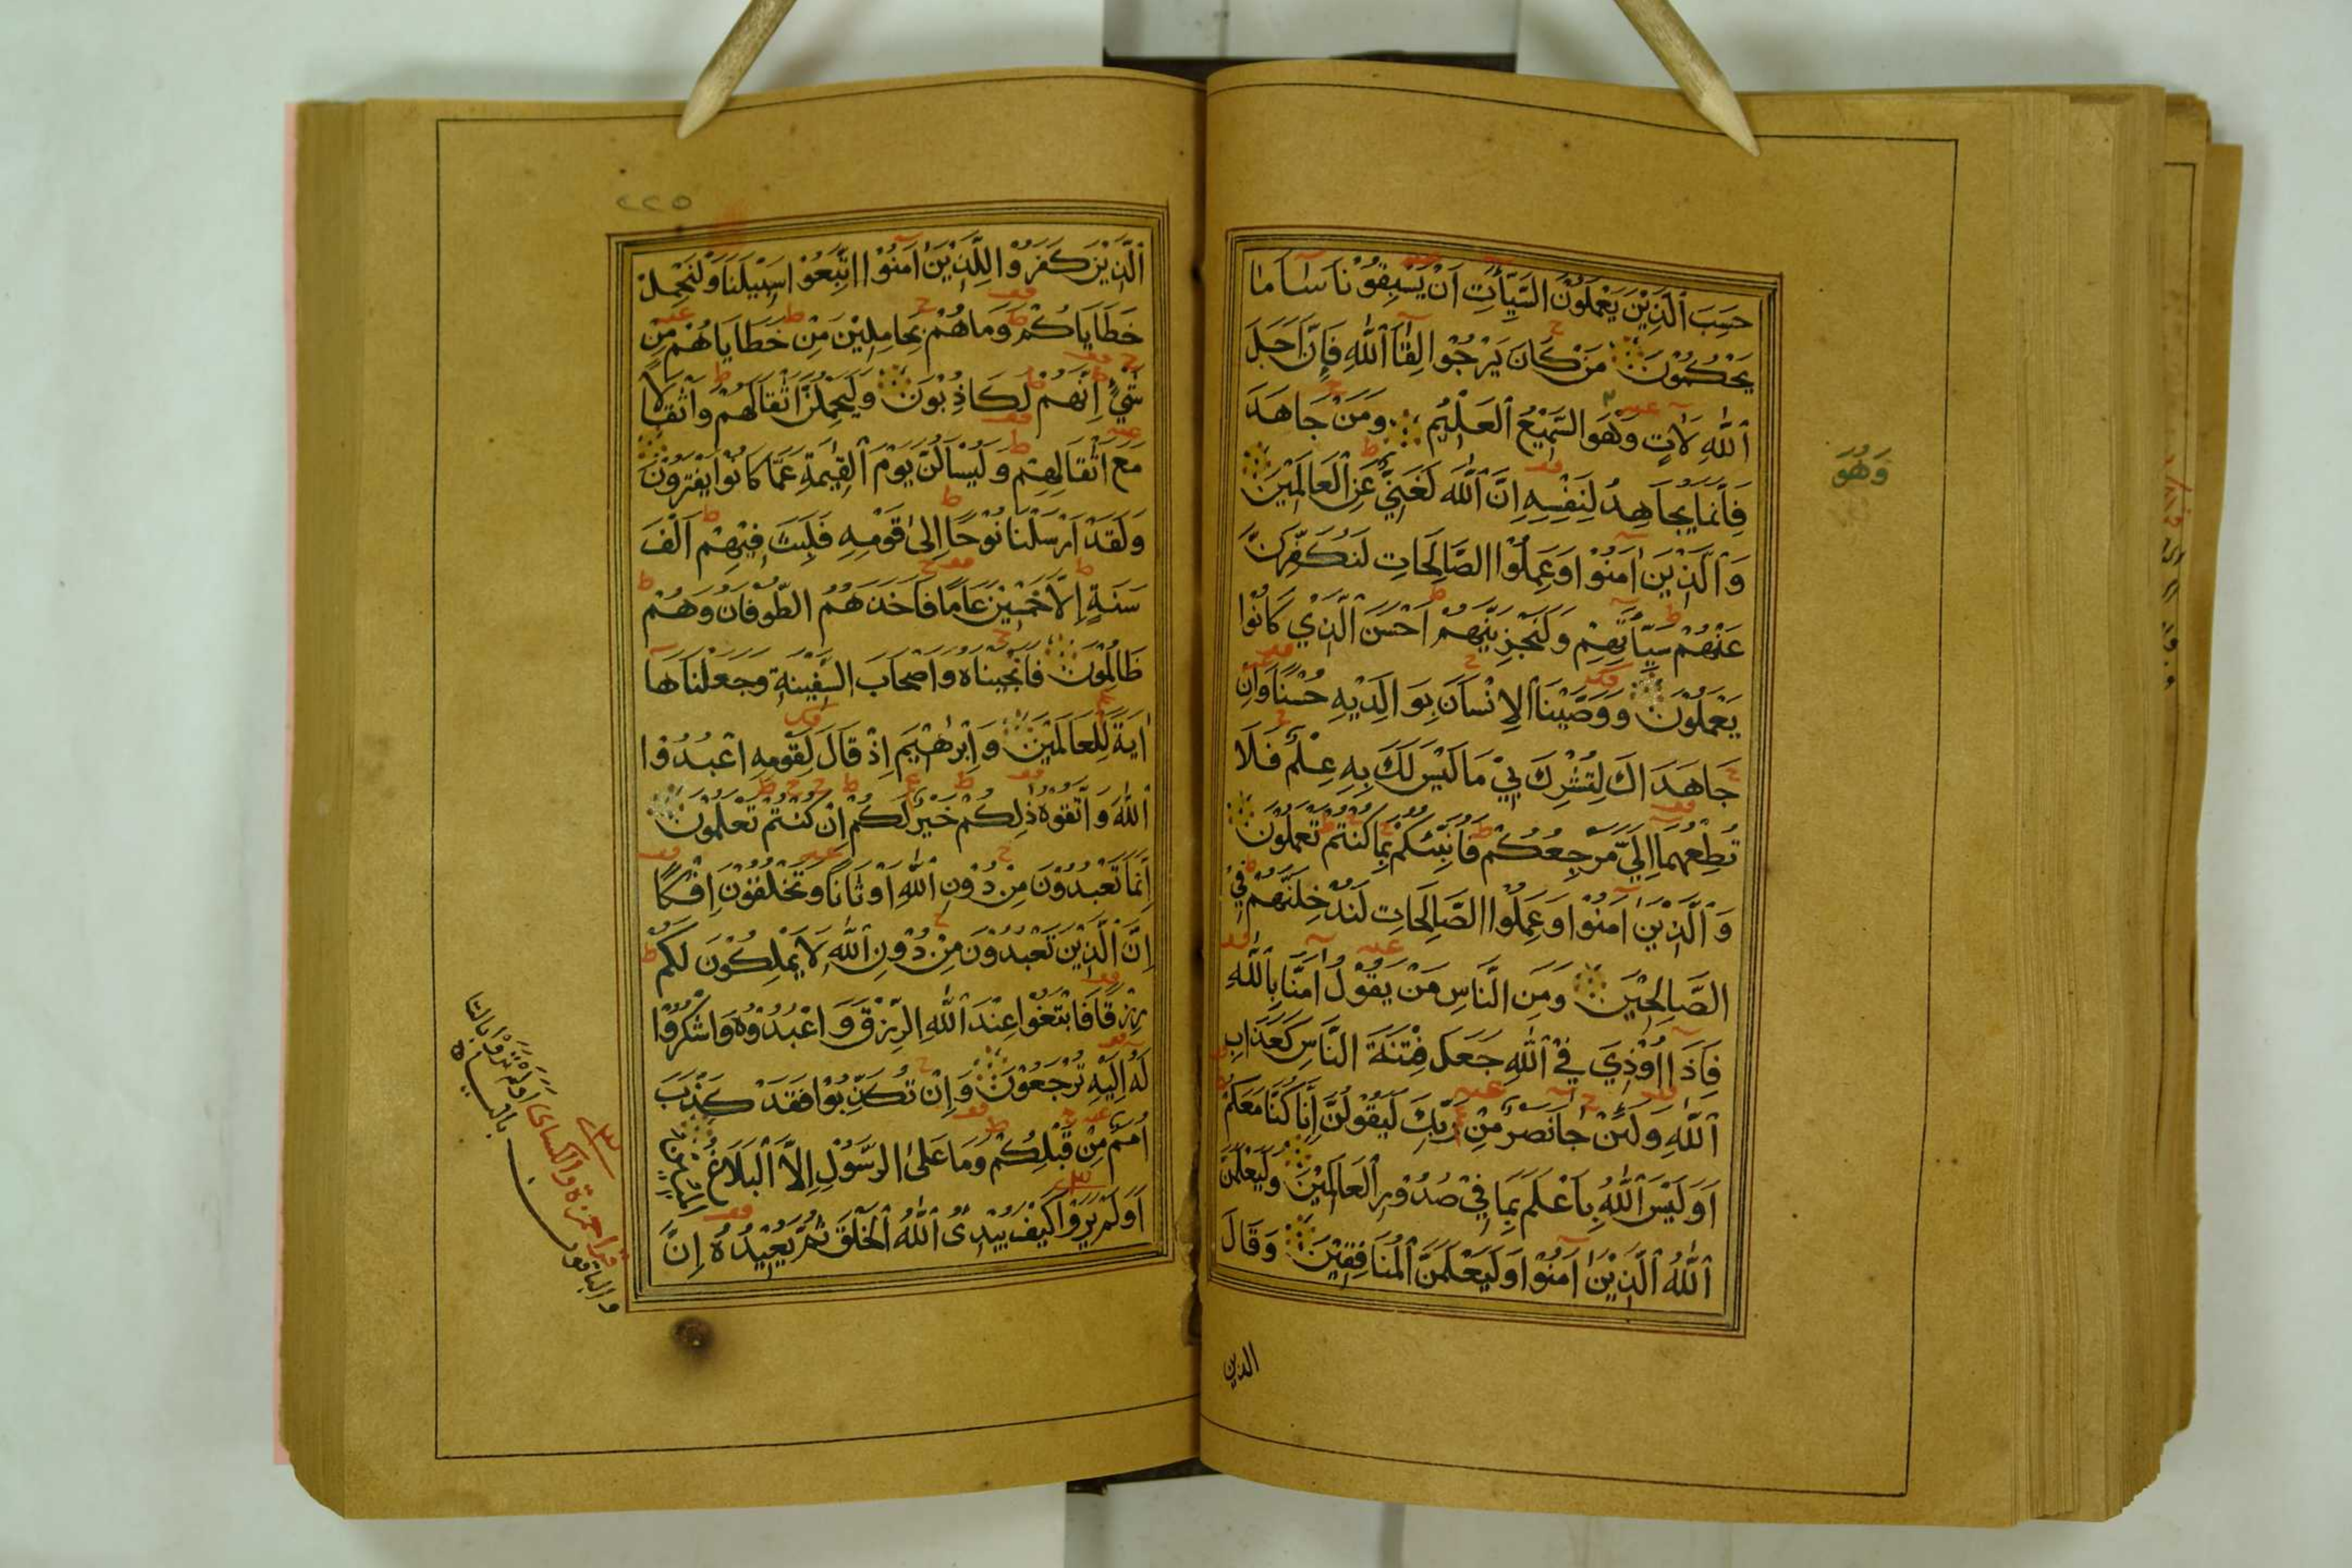 حَسِبَ ٱلَّذِيْنَ يَعْمَلُوْنَ السَّيِّأٰتِ اَنْ يَسْبِقُوْنَا سَاۤءَ مَا
يَحْكُمُوْنَ مَنْ كَانَ يَرْجُوْا لِقَاۤءَ ٱللهِ فَاِنَّ اَجَلَ
ٱللهِ لَاٰتٍ وَهُوَ السَّمِيْعُ ٱلعَلِيْمُ وَمَنْ جَاهَدَ
فَاِنَّمَا يُجَاهِدُ لِنَفْسِهِ اِنَّ ٱللهَ لَغَنِيٌّ عَنِ ٱلعَالَمِيْنَ
وَٱلَّذِيْنَ اٰمَنُوْا وَعَمِلُوْا الصَّالِحَاتِ لَنُكَفِّرَنَّ
عَنْهُمْ سَيِّاٰتِهِمْ وَلَنَجْزِيَنَّهُمْ اَحْسَنَ ٱلَّذِيْ كَانُوْا
يَعْمَلُوْنَ وَوَصَّيْنَا ٱلاِنْسَانَ بِوَالِدَيْهِ حُسْنًا وَاِنْ
جَاهَدَاكَ لِتُشْرِكَ بِيْ مَا لَيْسَ لَكَ بِهِ عِلْمٌ فَلَا
تُطِعْهُمَا اِلَيَّ مَرْجِعُكُمْ فَاُنَبِّئُكُمْ بِمَا كُنْتُمْ تَعْمَلُوْنَ
وَٱلَّذِيْنَ اٰمَنُوْا وَعَمِلُوْا الصَّالِحَاتِ لَنُدْخِلَنَّهُمْ فِيْ
الصَّالِحِيْنَ وَمِنَ النَّاسِ مَنْ يَقُوْلُ اٰمَنَّا بِٱللهِ
فَاِذَا اُوْذِيَ فِيْ ٱللهِ جَعَلَ فِتْنَةَ النَّاسِ كَعَذَابِ
ٱللهِ وَلَئِنْ جَاۤءَ نَصْرٌ مِّنْ رَّبِّكَ لَيَقُوْلُنَّ اِنَّا كُنَّا مَعَكُمْ
اَوَلَيْسَ ٱللهُ بِاَعْلَمَ بِمَا فِيْ صُدُوْرِ ٱلعَالَمِيْنَ وَلَيَعْلَمَنَّ
ٱللهُ ٱلَّذِيْنَ اٰمَنُوْا وَلَيَعْلَمَنَّ ٱلمُنَافِقِيْنَ وَقَالَ
الذين
وَهُوَ
٢٢٥
ٱلَّذِيْنَ كَفَرُوْا لِلَّذِيْنَ اٰمَنُوْا اتَّبِعُوْا سَبِيْلَنَا وَلْنَحْمِلْ
خَطَايَاكُمْ وَمَا هُمْ بِحَامِلِيْنَ مِنْ خَطَايَاهُمْ مِّنْ
شَيْءٍ اِنَّهُمْ لَكَاذِبُوْنَ وَلَيَحْمِلُنَّ اَثْقَالَهُمْ وَاَثْقَالًا
مَعَ اَثْقَالِهِمْ وَلَيُسْاَلُنَّ يَوْمَ ٱلقِيٰمَةِ عَمَّا كَانُوْا يَفْتَرُوْنَ
وَلَقَدْ اَرْسَلْنَا نُوْحًا اِلىٰ قَوْمِهِ فَلَبِثَ فِيْهِمْ اَلْفَ
سَنَةٍ اِلَّا خَمْسِيْنَ عَامًا فَاَخَذَهُمُ الطُّوْفَانُ وَهُمْ
ظَالِمُوْنَ فَاَنْجَيْنَاهُ وَاَصْحَابَ السَّفِيْنَةِ وَجَعَلْنَاهَا
اٰيَةً لِّلْعَالَمِيْنَ وَاِبْرٰهِيْمَ اِذْ قَالَ لِقَوْمِهِ اعْبُدُوْا
ٱللهَ وَاتَّقُوْهُ ذٰلِكُمْ خَيْرٌ لَّكُمْ اِنْ كُنْتُمْ تَعْلَمُوْنَ
اِنَّمَا تَعْبُدُوْنَ مِنْ دُوْنِ ٱللهِ اَوْثَانًا وَتَخْلُقُوْنَ اِفْكًا
اِنَّ ٱلَّذِيْنَ تَعْبُدُوْنَ مِنْ دُوْنِ ٱللهِ لَا يَمْلِكُوْنَ لَكُمْ
رِزْقًا فَابْتَغُوْا عِنْدَ ٱللهِ الرِّزْقَ وَاعْبُدُوْهُ وَاشْكُرُوْا
لَهُ اِلَيْهِ تُرْجَعُوْنَ وَاِنْ تُكَذِّبُوْا فَقَدْ كَذَّبَ
اُمَمٌ مِّنْ قَبْلِكُمْ وَمَا عَلَى الرَّسُوْلِ اِلَّا ٱلبَلَاغُ المُبِيْنُ
اَوَلَمْ يَرَوْا كَيْفَ يُبْدِئُ ٱللهُ ٱلخَلْقَ ثُمَّ يُعِيْدُهُ اِنَّ
قرا حمزة والكسائى اَوَلَمْ تَرَوْا بالتا
والباقون بالياء